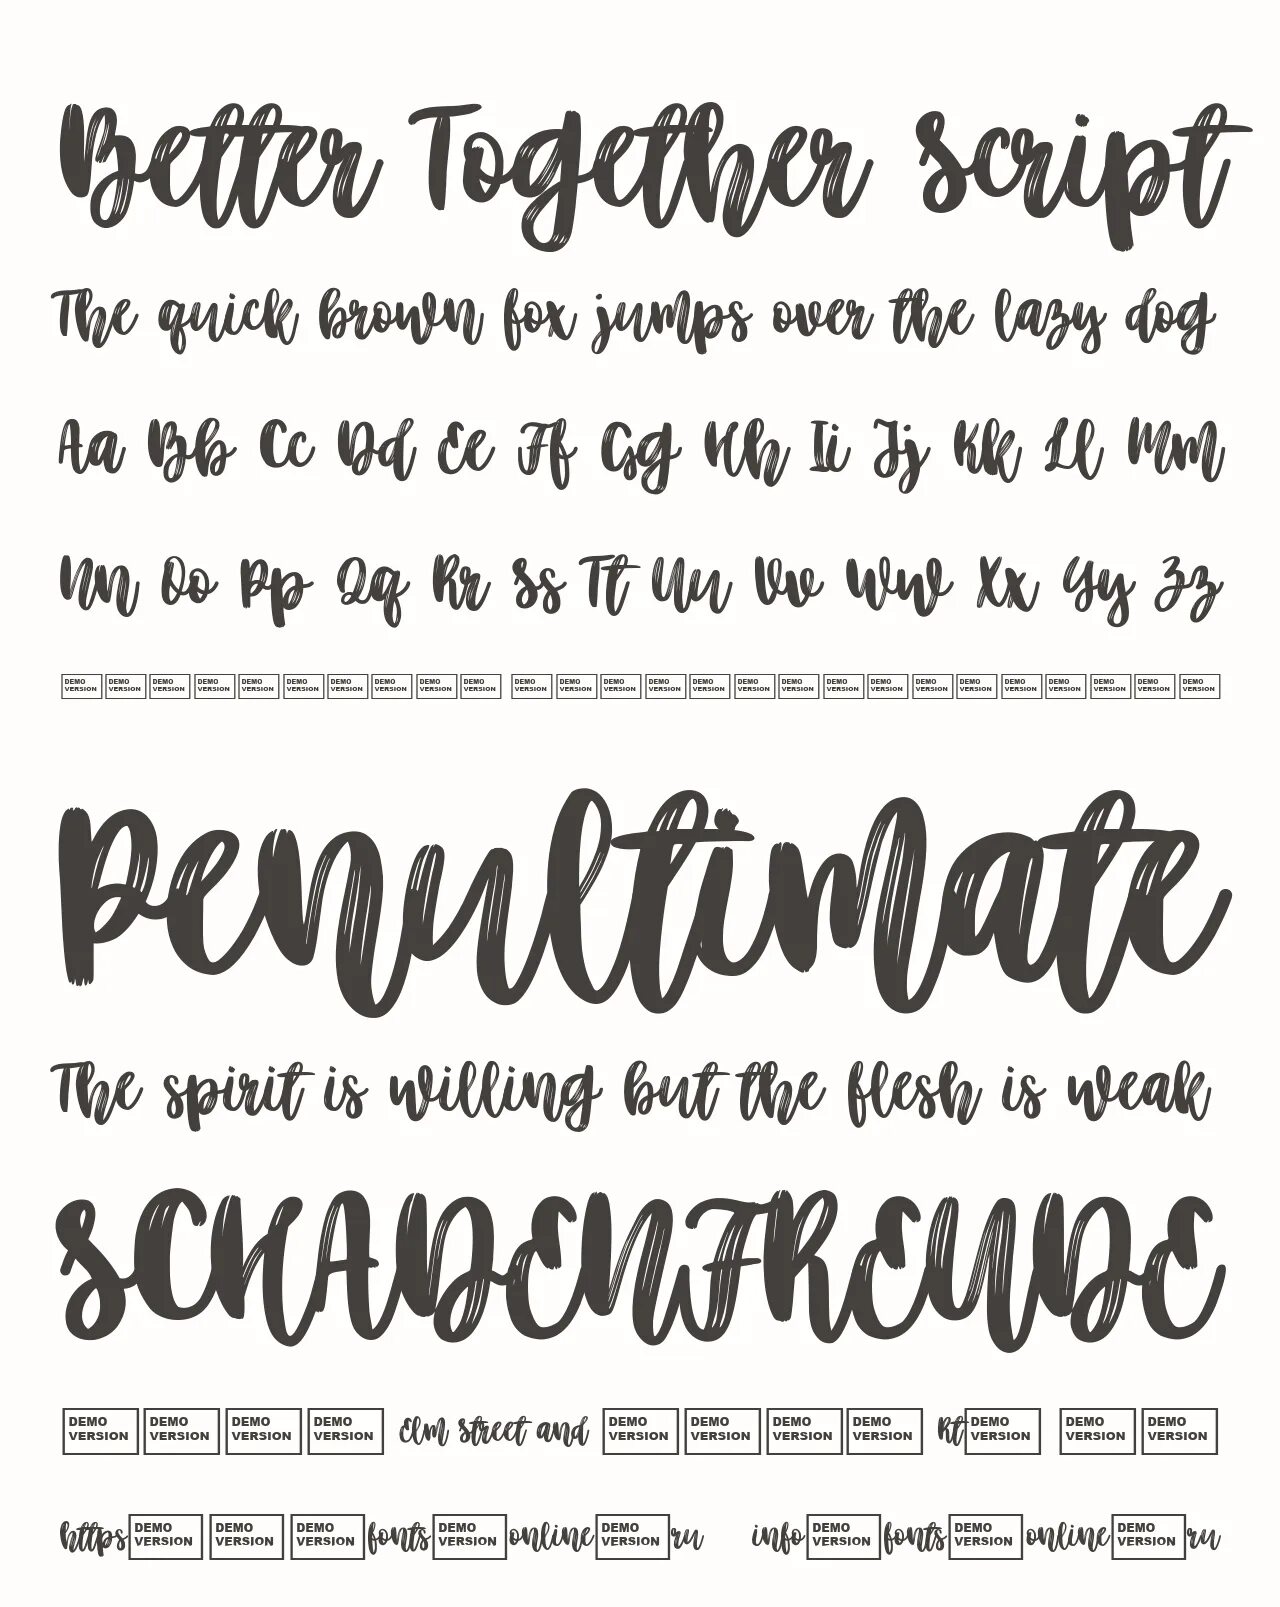 Better Together Script
The quick brown fox jumps over the lazy dog
Aa Bb Cc Dd Ee Ff Gg Hh Ii Jj Kk Ll Mm
Nn Oo Pp Qq Rr Ss Tt Uu Vv Ww Xx Yy Zz
DEMO VERSION DEMO VERSION DEMO VERSION DEMO VERSION DEMO VERSION DEMO VERSION DEMO VERSION DEMO VERSION DEMO VERSION DEMO VERSION DEMO VERSION DEMO VERSION DEMO VERSION DEMO VERSION DEMO VERSION DEMO VERSION DEMO VERSION DEMO VERSION DEMO VERSION DEMO VERSION DEMO VERSION DEMO VERSION DEMO VERSION DEMO VERSION DEMO VERSION DEMO VERSION
Penultimate
The spirit is willing but the flesh is weak
SCHADENFREUDE
DEMO VERSION DEMO VERSION DEMO VERSION DEMO VERSION Elm Street and DEMO VERSION DEMO VERSION DEMO VERSION DEMO VERSION Rt DEMO VERSION DEMO VERSION DEMO VERSION
https DEMO VERSION DEMO VERSION DEMO VERSION fonts DEMO VERSION online DEMO VERSION ru info DEMO VERSION fonts DEMO VERSION online DEMO VERSION ru